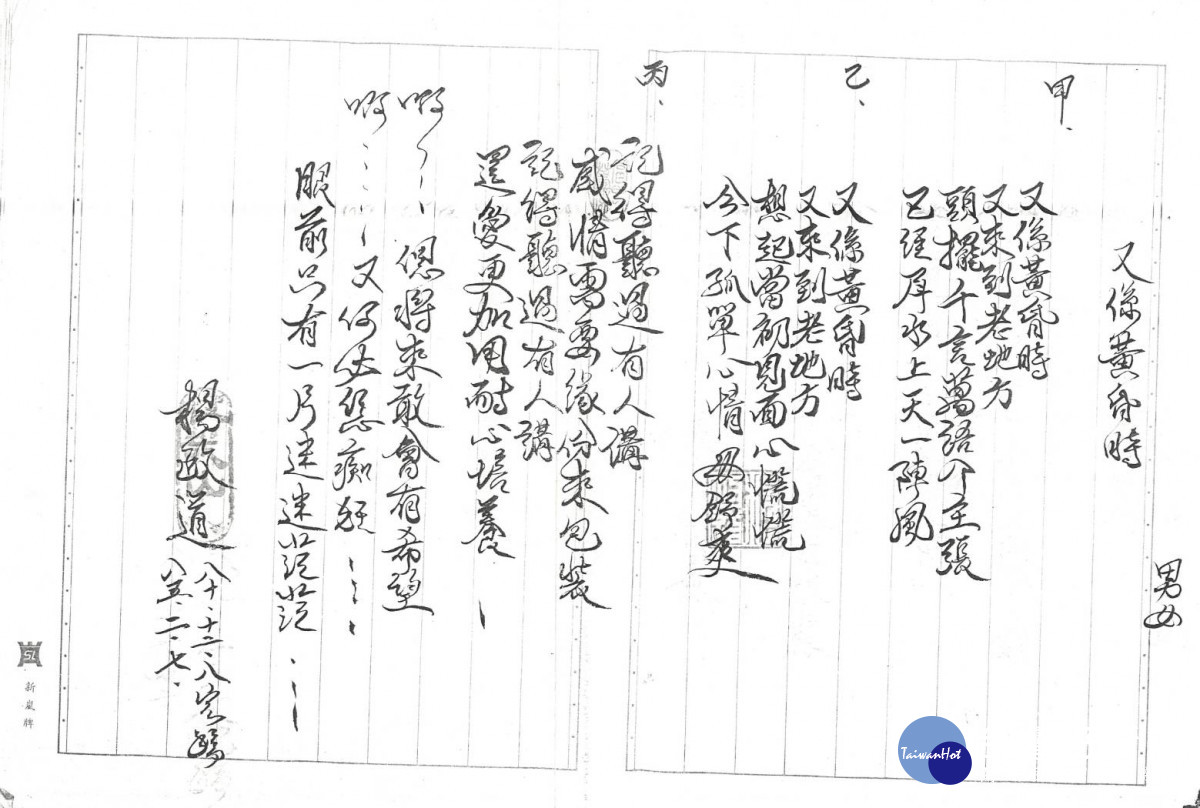 男女
又係黃昏時
甲、
又係黃昏時
又來到老地方
頭擺千言萬語个主張
已經厚水上天一陣風
乙、
又係黃昏時
又來到老地方
想起當初見面心慌慌
今下孤單心情毋舒爽
丙、
記得聽過有人講
感情需要緣份來包裝
記得聽過有人講
還愛更加用耐心培養
啊
偲將來敢會有希望
啊
又何必恁痴狂
眼前只有一片迷迷茫茫
楊政道
八十、十二、八完稿
八五、二、七、
新嵐牌
TaiwanHot